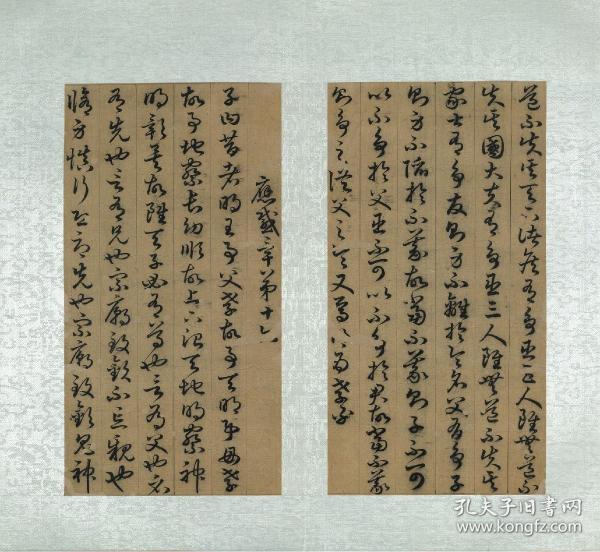 道不失其天下諸侯有爭臣五人雖無道不
失其國大夫有爭臣三人雖無道不失其
家士有爭友則身不離於令名父有爭子
則身不陷於不義故當不義則子不可
以不爭於父臣不可以不爭於君故當不義
則爭之從父之令又焉得為孝乎
應感章第十六
子曰昔者明王事父孝故事天明事母孝
故事地察長幼順故上下治天地明察神
明彰矣故雖天子必有尊也言有父也必
有先也言有兄也宗廟致敬不忘親也
脩身慎行恐辱先也宗廟致敬鬼神
孔夫子旧书网
www.kongfz.com